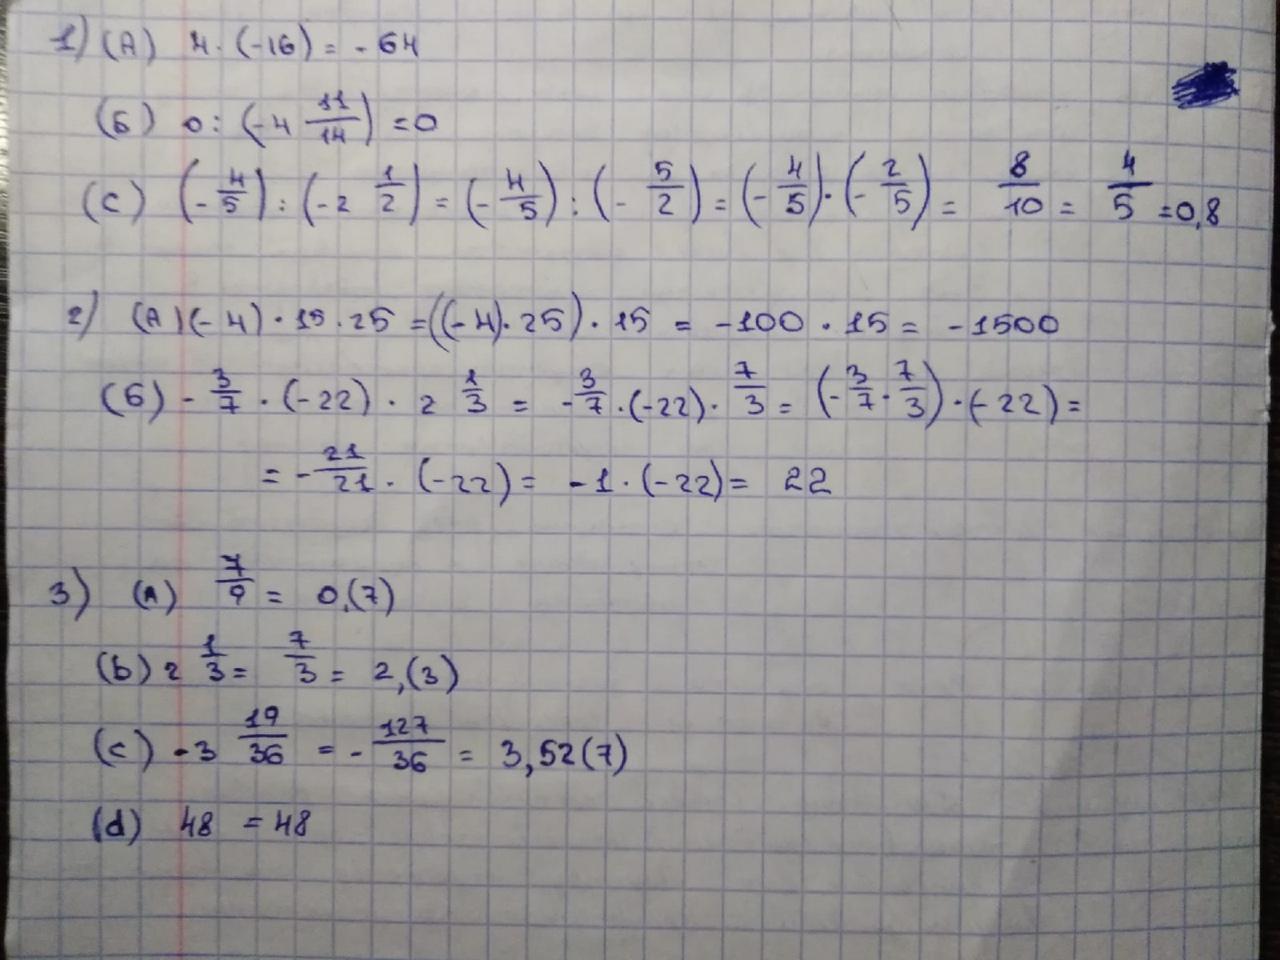 1) (A) 4 · (-16) = - 64
(б) 0 : (-4 11/14) = 0
(c) (- 4/5) : (-2 1/2) = (- 4/5) : (- 5/2) = (- 4/5) · (- 2/5) = 8/10 = 4/5 = 0,8
2) (A) (- 4) · 15 · 25 = ((-4) · 25) · 15 = -100 · 15 = -1500
(б) - 3/7 · (-22) · 2 1/3 = - 3/7 · (-22) · 7/3 = (- 3/7 · 7/3) · (-22) =
= - 21/21 · (-22) = -1 · (-22) = 22
3) (A) 7/9 = 0,(7)
(b) 2 1/3 = 7/3 = 2,(3)
(c) -3 19/36 = - 127/36 = 3,52(7)
(d) 48 = 48